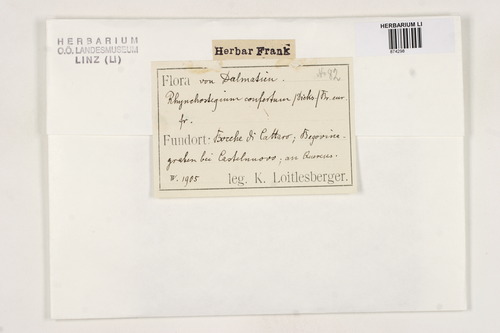 HERBARIUM
O.Ö. LANDESMUSEUM
LINZ (LI)
Herbar Frank
HERBARIUM LI
Flora von Dalmatien.
Rhynchostegium confertum (Dicks.) Br. eur.
fr.
Fundort: Bocche di Cattaro;
graben bei Castelnuovo; an Quercus.
IV. 1905 leg. K. Loitlesberger.